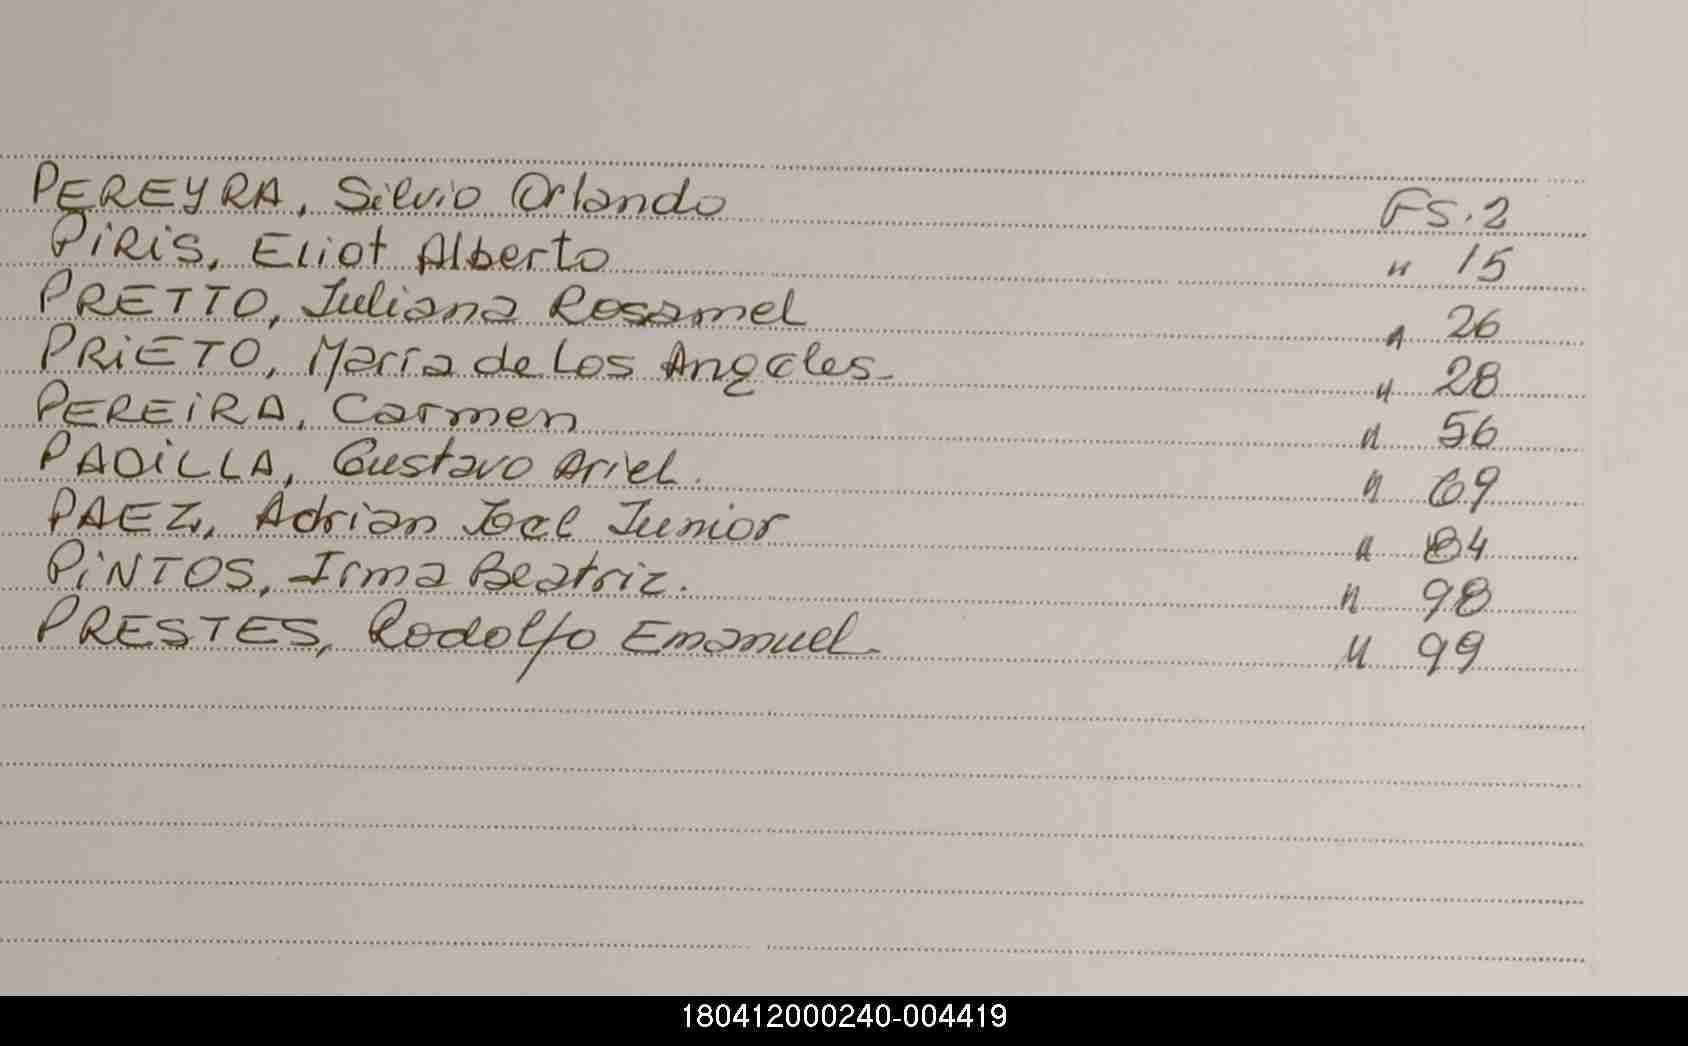 PEREYRA, Silvio Orlando Fs. 2
PiRiS, Eliot Alberto " 15
PRETTO, Juliana Rosamel " 26
PRiETO, María de Los Angeles- " 28
PEREiRA, Carmen " 56
PADiLLA, Gustavo Ariel. " 69
PAEZ, Adrian Joel Junior " 84
PiNTOS, Irma Beatriz. " 98
PRESTES, Rodolfo Emanuel- " 99
180412000240-004419